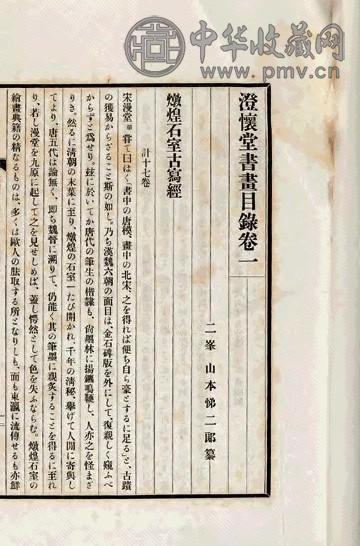 中华收藏网
www.pmv.cn
澄懷堂書畫目錄卷一
二峯 山本悌二郎纂
燉煌石室古寫經
計十七卷
宋漫堂犖嘗て曰はく「書中の唐模、畫中の北宋、之を得れば便ち自ら豪とするに足る」と、古蹟
の獲易からざること斯の如し。乃ち漢魏六朝の面目は、金石碑版を外にして、復親しく窺ふべ
からずと爲せり。玆に於いてか唐代の筆生の楷隷も、尙墨林に揚鑣鳴鞭し、人亦之を怪まざ
りき。然るに清朝の末葉に至り、燉煌の石室一たび開かれ、千年の清秘、擧げて人間に寄與し
てより、唐五代は論無く、卽ち魏晉に溯りて、仍能く其の筆墨に親炙することを得るに至れ
り、若し漫堂を九原に起して之を見せしめば、蓋し愕然として色を失ふならむ。燉煌石室の
繪畫典籍の精なるものは、多くは歐人の胠取する所となりしも、而も東瀛に流傳せるも亦鮮